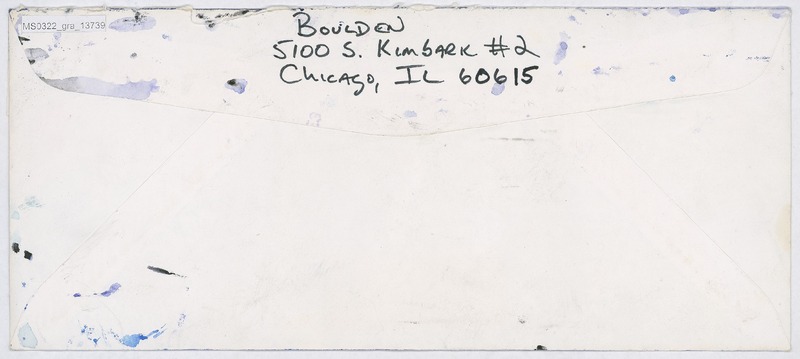 MS0322_gra_13739
BOULDEN
5100 S. KIMBARK #2
CHICAGO, IL 60615